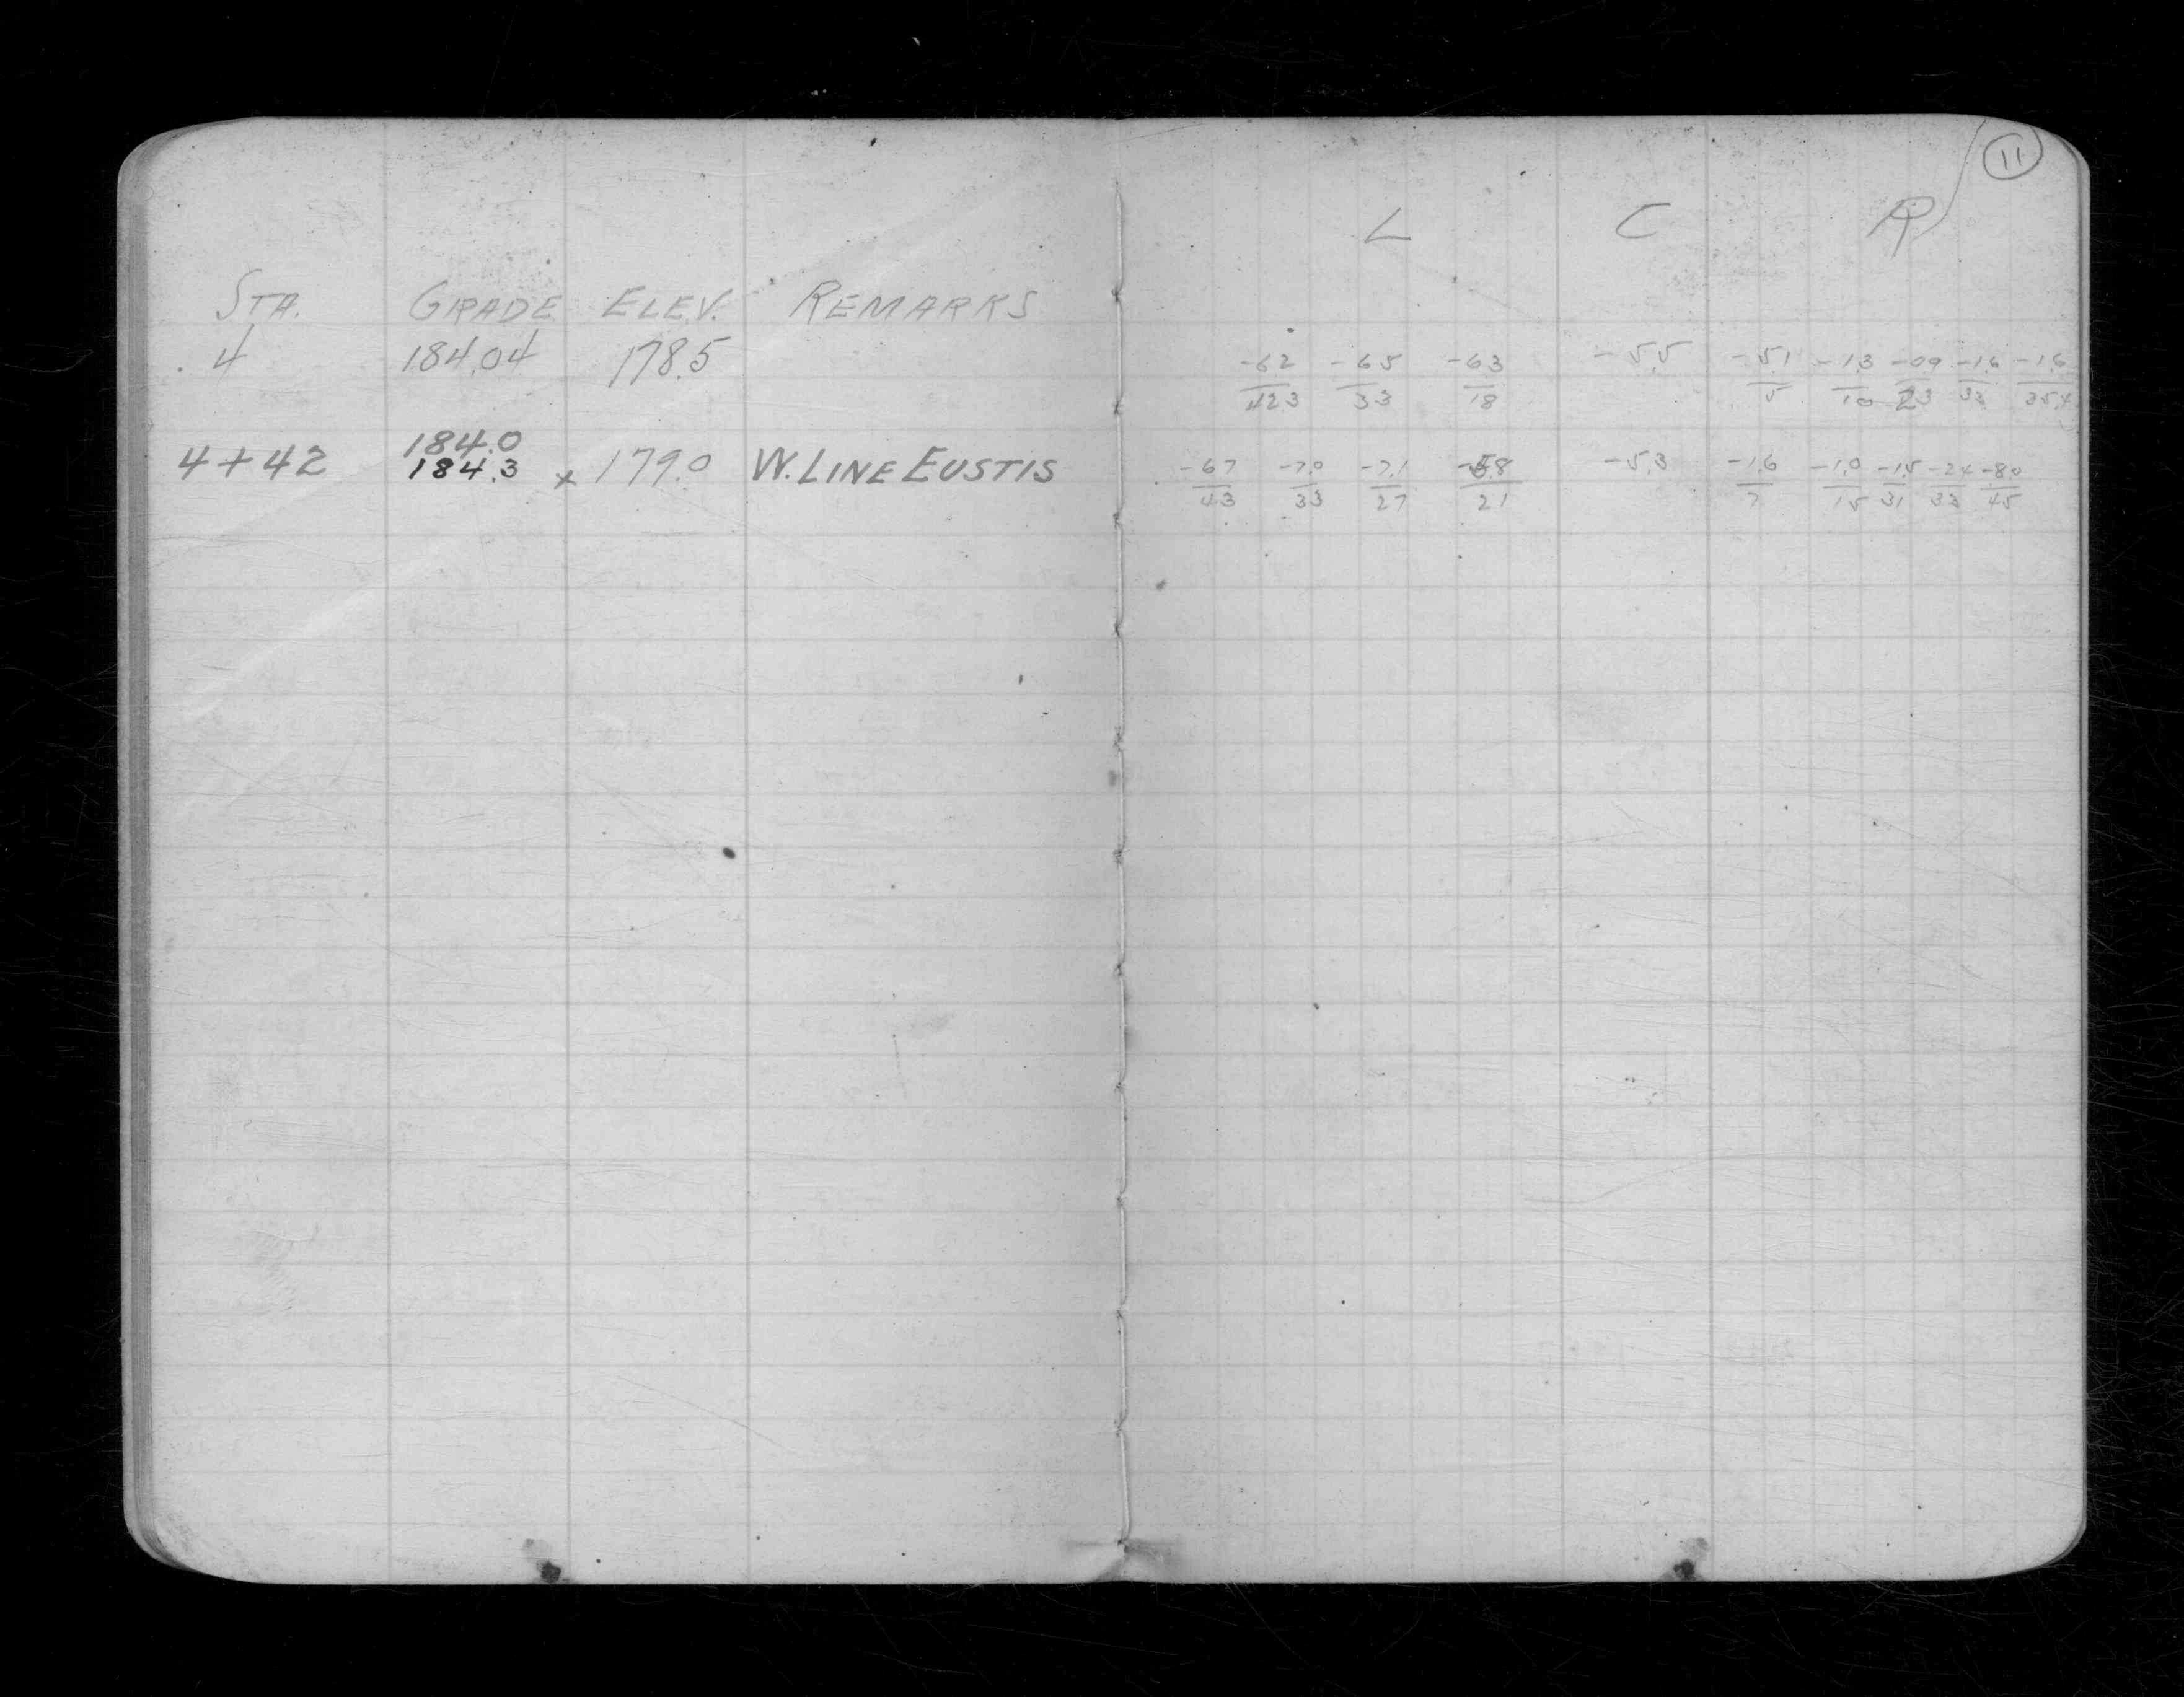 11
L C R
STA. GRADE ELEV. REMARKS
4 184.04 178.5
-6.2 -6.5 -6.3 -5.5 -5.1 -1.3 -0.9 -1.6 -1.6
42.3 33 18 5 10 23 33 35.4
184.0
4+42 184.3 x 179.0 W. LINE EUSTIS
-6.7 -7.0 -7.1 -5.8 -5.3 -1.6 -1.0 -1.5 -2.4 -8.0
43 33 27 21 7 15 31 33 45